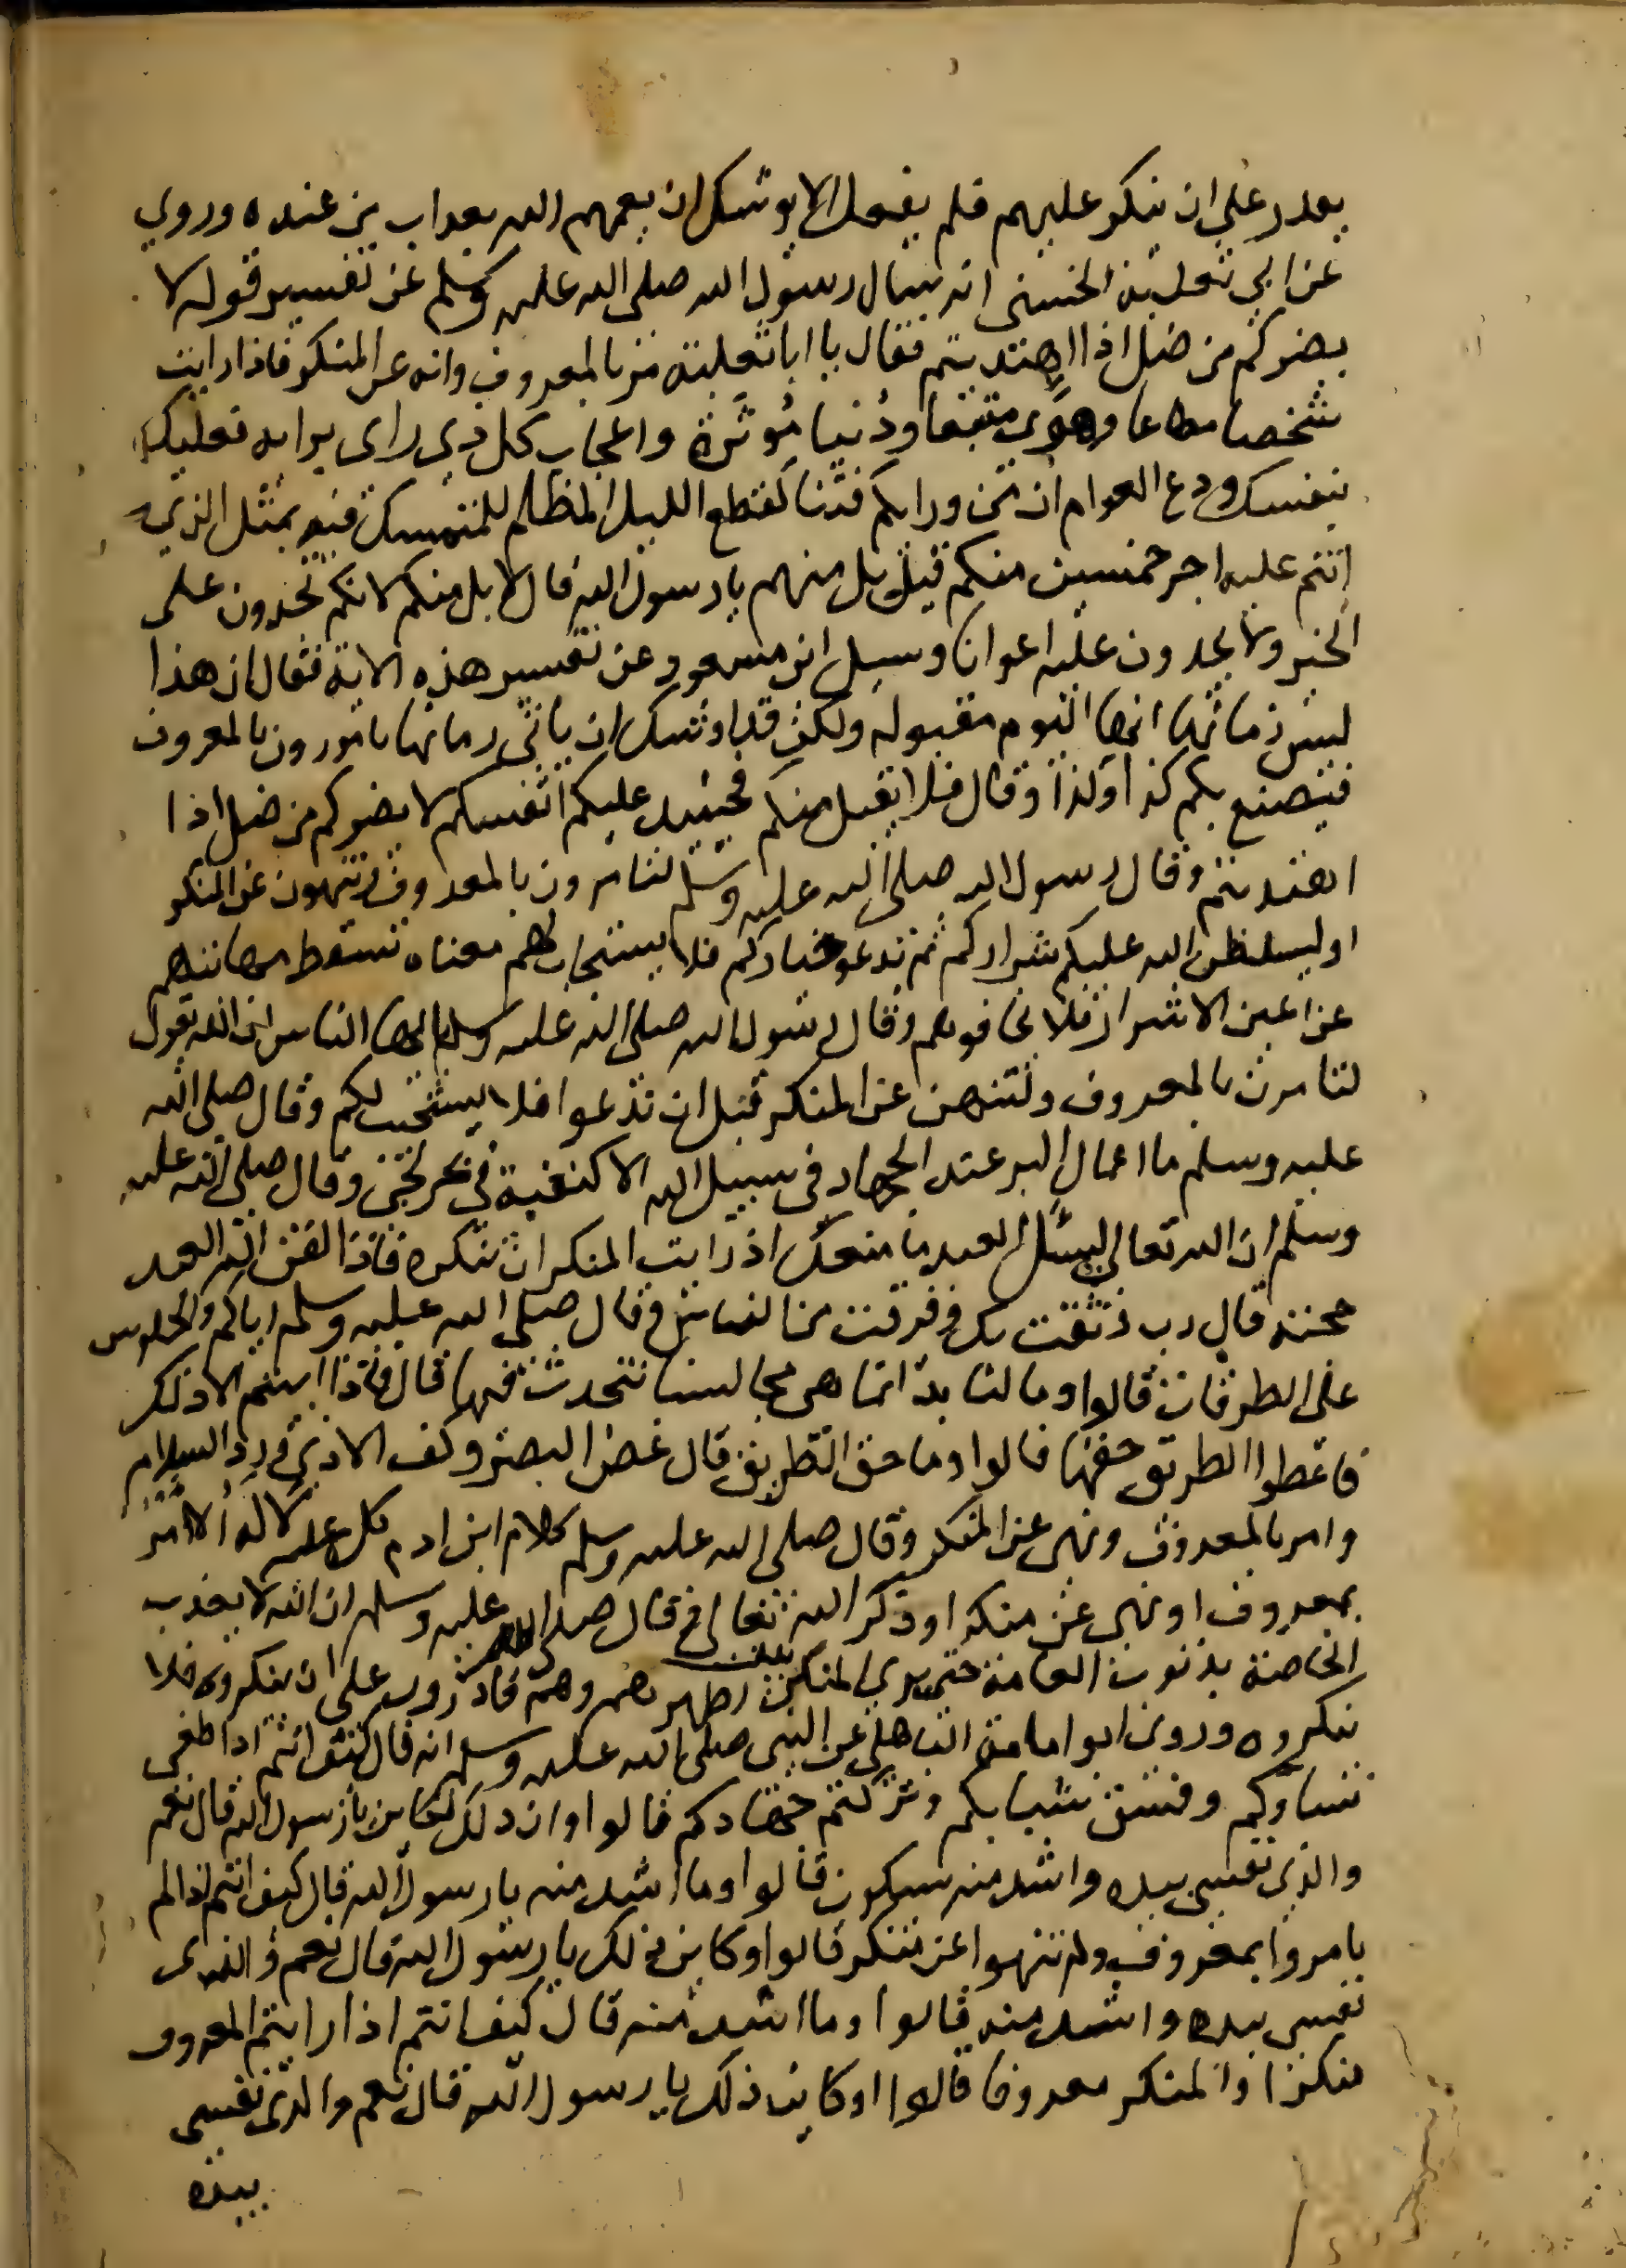 يقدر علي ان ينكر عليهم فلم يفعل الا يوشك ان يعمهم الله بعذاب من عنده وروي
عن ابي ثعلبة الخشني انه سال رسول الله صلى الله عليه وسلم عن تفسير قوله لا
يضركم من ضل اذا اهتديتم فقال يا ابا ثعلبة مر بالمعروف وانه عن المنكر فاذا رايت
شخصا مطاعا وهوي متبعا ودنيا مُوثرة واعجاب كل ذي راى برايه فعليك
بنفسك ودع العوام ان من ورايكم فتنا كقطع الليل المظلم للمتمسك فيه بمثل الذي
انتم عليه اجر خمسين منكم قيل بل منهم يا رسول الله قال لا بل منكم لانكم تجدون على
الخير ولا يجدون عليه اعوانا وسيل ابن مسعود عن تفسير هذه الاية فقال ان هذا
ليس زمانها انها اليوم مقبوله ولكن قد اوشك ان ياتي زمانها تامرون بالمعروف
فيصنع بكم كذا وكذا وقال فلا يقبل منكم فحينيد عليكم انفسكم لا يضركم من ضل اذا
اهتديتم وقال رسول الله صلى الله عليه وسلم لتامرون بالمعروف ولتنهون عن المنكر
او ليسلطن الله عليكم شراركم ثم تدعو خياركم فلا يستجاب لهم معناه تسقط مهابتهم
عن اعين الاشرار فلا يخافونهم وقال رسول الله صلى الله عليه وسلم يا ايها الناس ان الله يقول
لتامرن بالمعروف ولتنهن عن المنكر قبل ان تدعوا فلا يستجيب لكم وقال صلى الله
عليه وسلم ما اعمال البر عند الجهاد في سبيل الله الا كنفثة في بحر لجي وقال صلى الله عليه
وسلم ان الله تعالى ليسئل العبد ما منعك اذ رايت المنكر ان تنكره فاذا لقن الله العبد
حجته قال رب وثقت بك وفرقت من الناس وقال صلى الله عليه وسلم اياكم والجلوس
على الطرقات قالوا وما لنا بد انما هى مجالسنا نتحدث فيها قال فاذا ابيتم الا ذلك
فاعطوا الطريق حقها قالوا وما حق الطريق قال غض البصر وكف الاذى ورد السلام
وامر بالمعروف ونهى عن المنكر وقال صلى الله عليه وسلم كلام ابن ادم كل عليه لا له الا امر
بمعروف او نهى عن منكر او ذكر الله تعالى وقال صلى الله عليه وسلم ان الله لا يعذب
الخاصة بذنوب العامة حتي يري المنكر بين اظهرهم وهم قادرون على ان ينكروه فلا
ينكروه وروى ابو امامة الباهلي عن النبي صلى الله عليه وسلم انه قال كيف انتم اذا طغى
نساوكم وفسق شبابكم وتركتم جهادكم قالوا وان ذلك لكاين يا رسول الله قال نعم
والذي نفسي بيده واشد منه سيكون قالوا وما اشد منه يا رسول الله قال كيف انتم اذا لم
تامروا بمعروف ولم تنهوا عن منكر قالوا وكاين ذلك يا رسول الله قال نعم والذى
نفسي بيده واشد منه قالوا وما اشد منه قال كيف انتم اذا رايتم المعروف
منكرا والمنكر معروفا قالوا اوكاين ذلك يا رسول الله قال نعم والذى نفسي
بيده